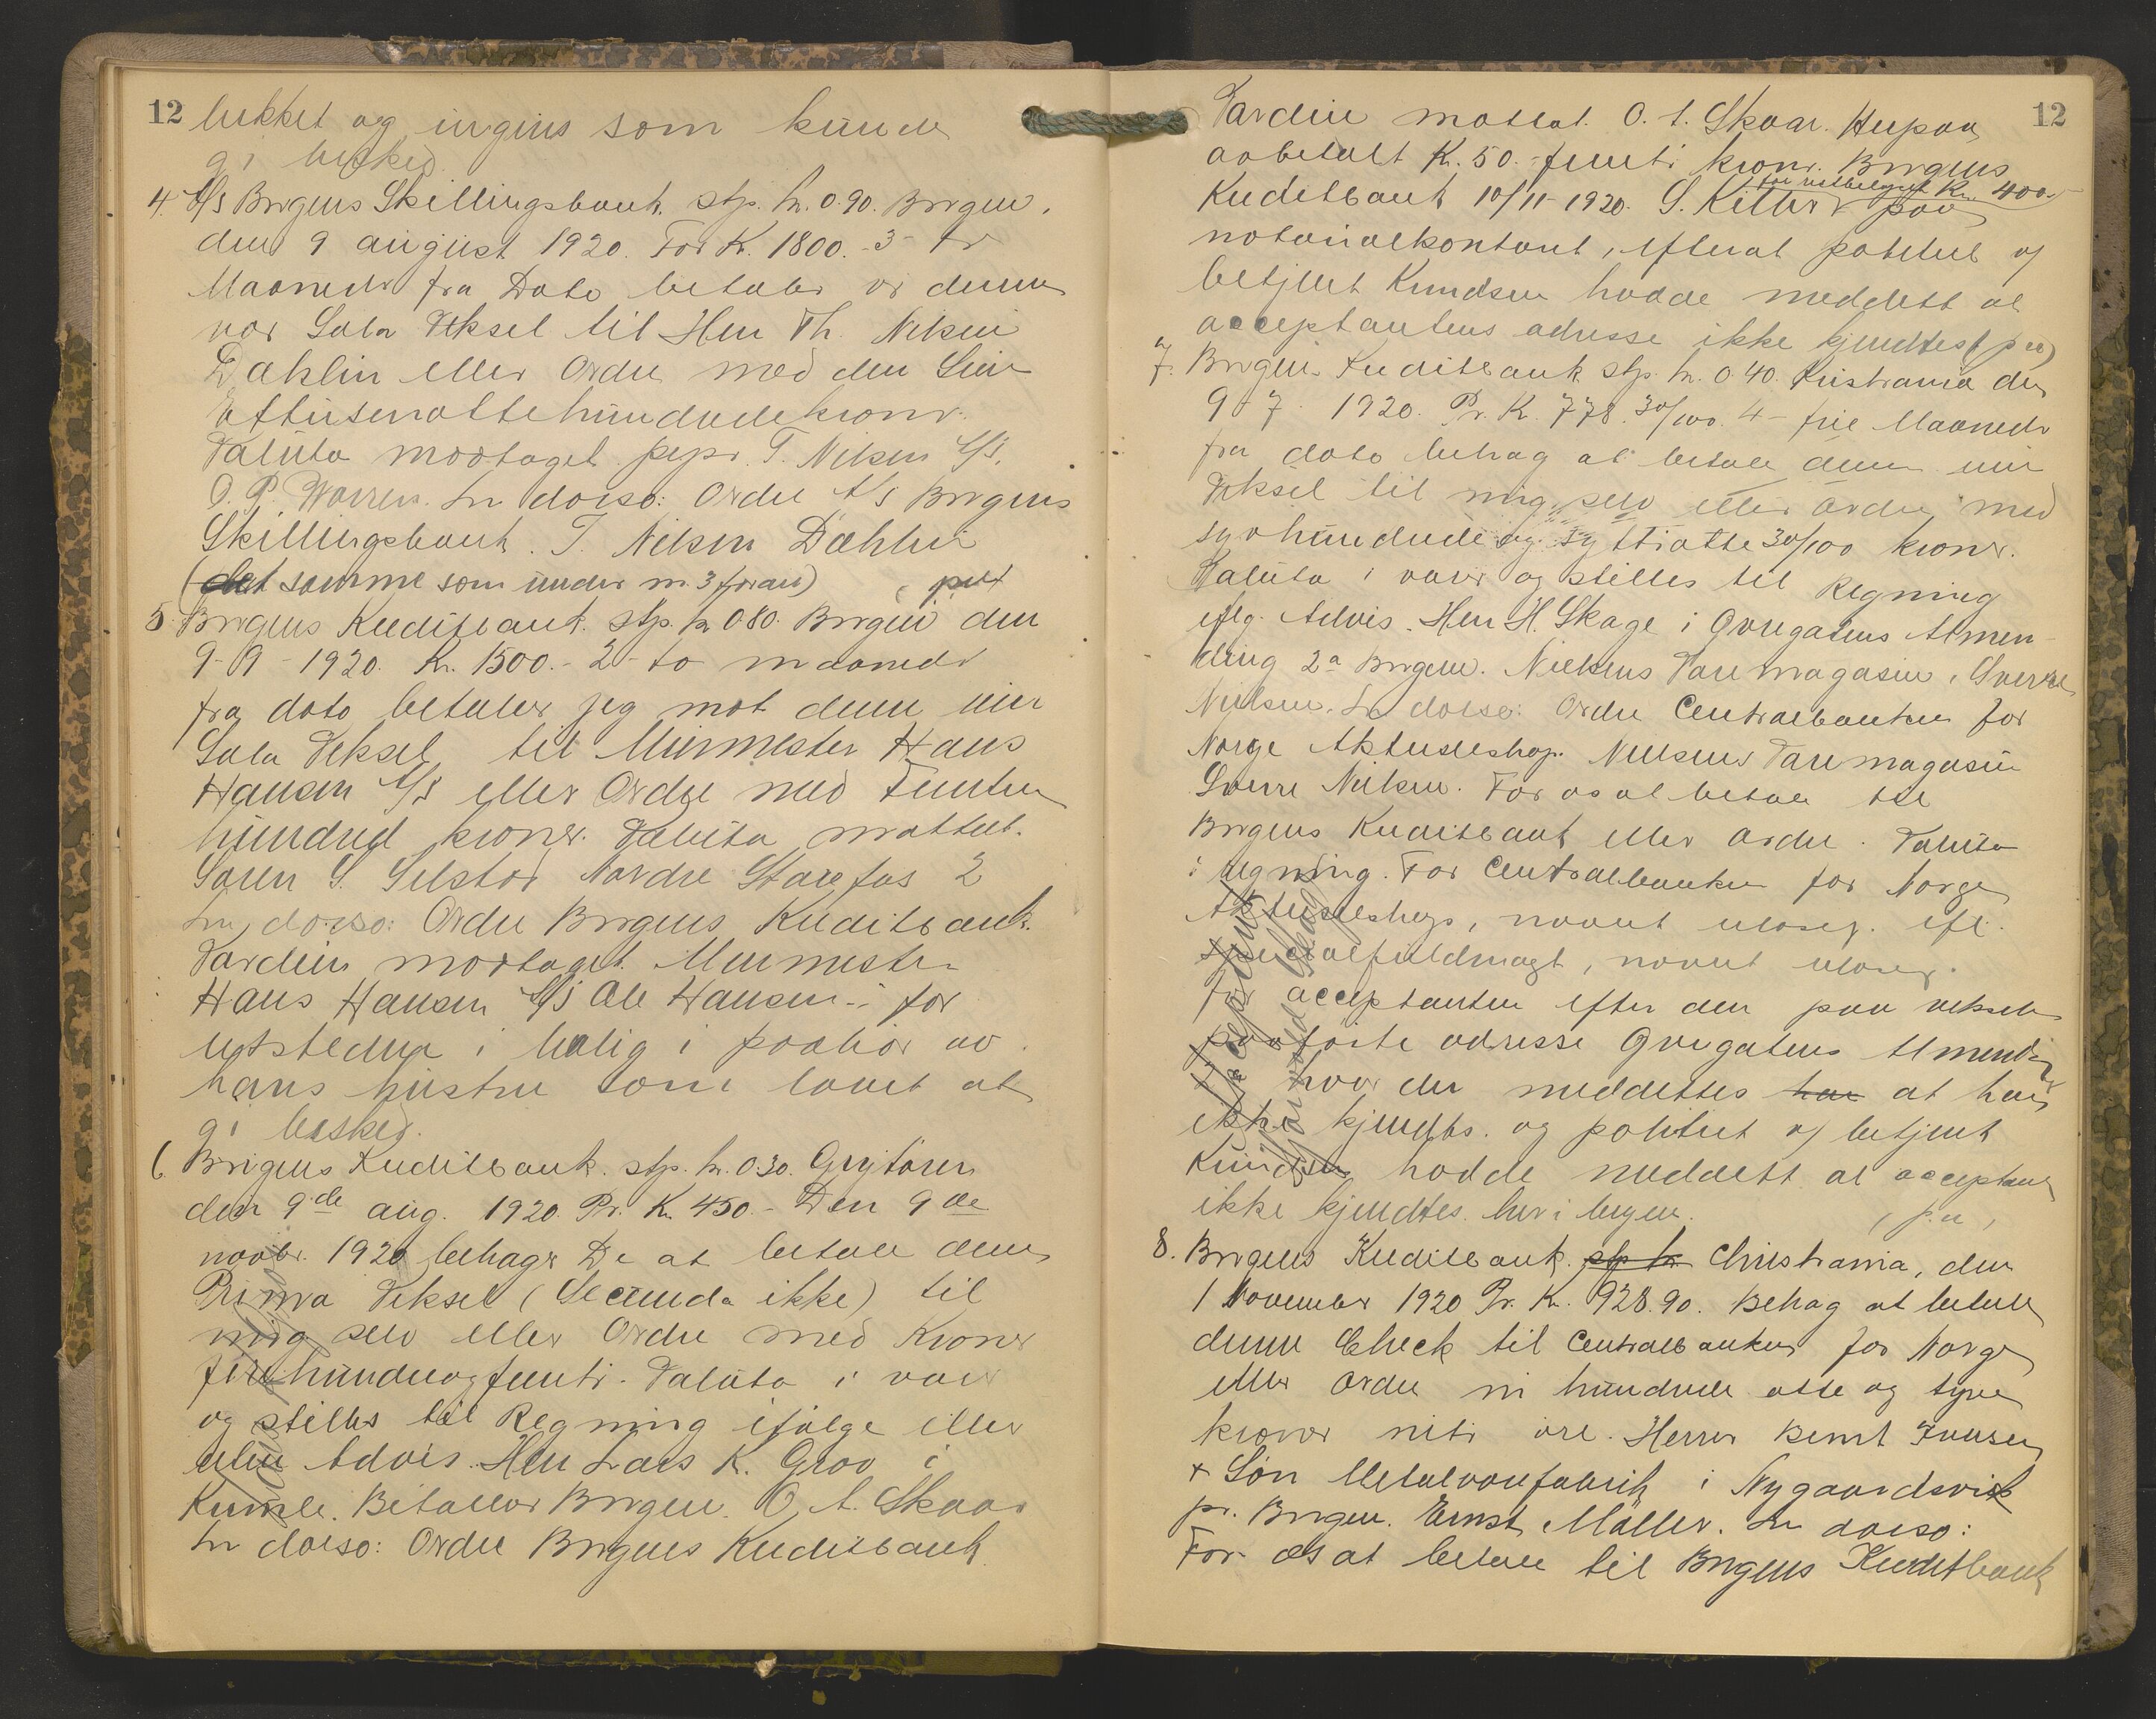 12 lukket og ingens som kunde
gi besked.
4. A/S Bergens Skillingsbank. stp. kr. 0.90. Bergen,
den 9 august 1920. For Kr. 1800.- 3- tre
Maaneder fra Dato betaler vi denne
vor Sola Veksel til Herr Th. Nilsen
Dahlin eller Ordre med den Sum
Ettusenottehundredekroner.
Valuta modtaget. pepr. T. Nilsen A/S.
O. P. Warren. In dorso: Ordre A/S Bergens
Skillingsbank. T. Nilsen Dahlin
(det samme som under nr. 3 foran)
5. Bergens Kreditbank. stp. kr 0 80. Bergen den
9-9-1920. Kr. 1500.- 2- to maaneder
fra dato betaler jeg mot denne min
Sola Veksel til Murmester Hans
Hansen A/S eller Ordre med Femten
hundred kroner. Valuta mottat.
Søren S. Selstø Nordre 2
In dorso: Ordre Bergens Kreditbank.
Værdien modtaget. Murmester
Hans Hansen A/S Ole Hansen - for
utstederen i bolig i paahør av
hans hustru som lovet at
gi besked.
6. Bergens Kreditbank. stp. kr. 0.30. Grytøren
den 9de aug. 1920. Pr. Kr. 450.- Den 9de
novbr. 1920 behager De at betale denne
Prima Veksel (Secunda ikke) til
mig selv eller Ordre med Kroner
firehundreogfemti. Valuta i varer
og stilles til Regning ifølge eller
uten Advis. Herr Lars K. Groo i
Kumle. Betales Bergen. O. A. Skaar
In dorso: Ordre Bergens Kreditbank.
Værdien mottat. O. A. Skaar. Herpaa 12
avbetalt Kr. 50.- femti kroner. Bergens
Kreditbank 10/11-1920. S. paa
notarialkontoret, efterat politiet v/
betjent Knudsen hadde meddelt at
acceptantens adresse ikke kjendtes
7. Bergens Kreditbank stp. kr. 0.40. Kristiania den
9-7 1920. Pr. Kr. 778.30/100. 4 - fire Maaneder
fra dato behag at betale denne min
Veksel til mig selv eller ordre med
syvhundredeog syttiotte 30/100 kroner.
Valuta i varer og stilles til Regning
iflg. Advis. Herr H. Skage i Øvregatens Almen-
ding 2a Bergen. Nielsens Varemagasin, Sverre
Nielsen. In dorso: Ordre Centralbanken for
Norge Aktieselskap. Nielsens Varemagasin
Sverre Nielsen. For os at betale til
Bergens Kreditbank eller ordre. Valuta
i regning. For Centralbanken for Norge
Aktieselskap, navnet ulæsel. ifl.
specialfuldmagt, navnet ulæsel.
For acceptanten efter den paa vekselen
paaførte adresse Øvregatens Almending
hvor der meddeltes han at han
ikke kjendtes. og politiet v/ betjent
Knudsen hadde meddelt at acceptanten
ikke kjendtes her i byen.
8. Bergens Kreditbank. stp kr Christiania, den
1 November 1920 Pr. Kr. 928.90. Behag at betale
denne Check til Centralbanken for Norge
eller Ordre ni hundrede otte og tyve
kroner niti øre. Herrer Bernt Iversen
& Søn Metalvarefabrik i Nygaardsvik
pr. Bergen. Ernst Møller. In dorso:
For os at betale til Bergens Kreditbank